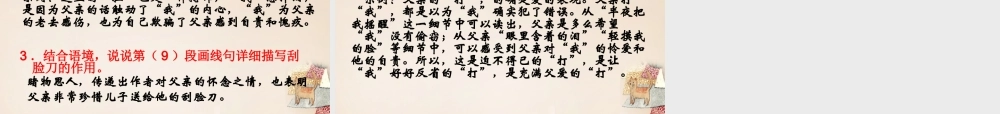 是因为父亲的话触动了“我”的内心，“我”为父亲
的老去感伤，也为自己欺骗了父亲感到自责和愧疚。
3．结合语境，说说第（9）段画线句详细描写刮
脸刀的作用。
睹物思人，传递出作者对父亲的怀念之情，也表明
父亲非常珍惜儿子送给他的刮脸刀。
“我”，都是以为“我”确实犯了错误。从“半夜把
我摇醒”这一细节中可以读出，父亲是多么希望
“我”没有偷窃；从父亲“眼里含着的泪”“轻摸我
的脸”等细节中，可以感受到父亲对“我”的怜爱和
他的自责。所以，这是迫不得已的“打”，是让
“我”好好反省的“打”，是充满父爱的“打”。